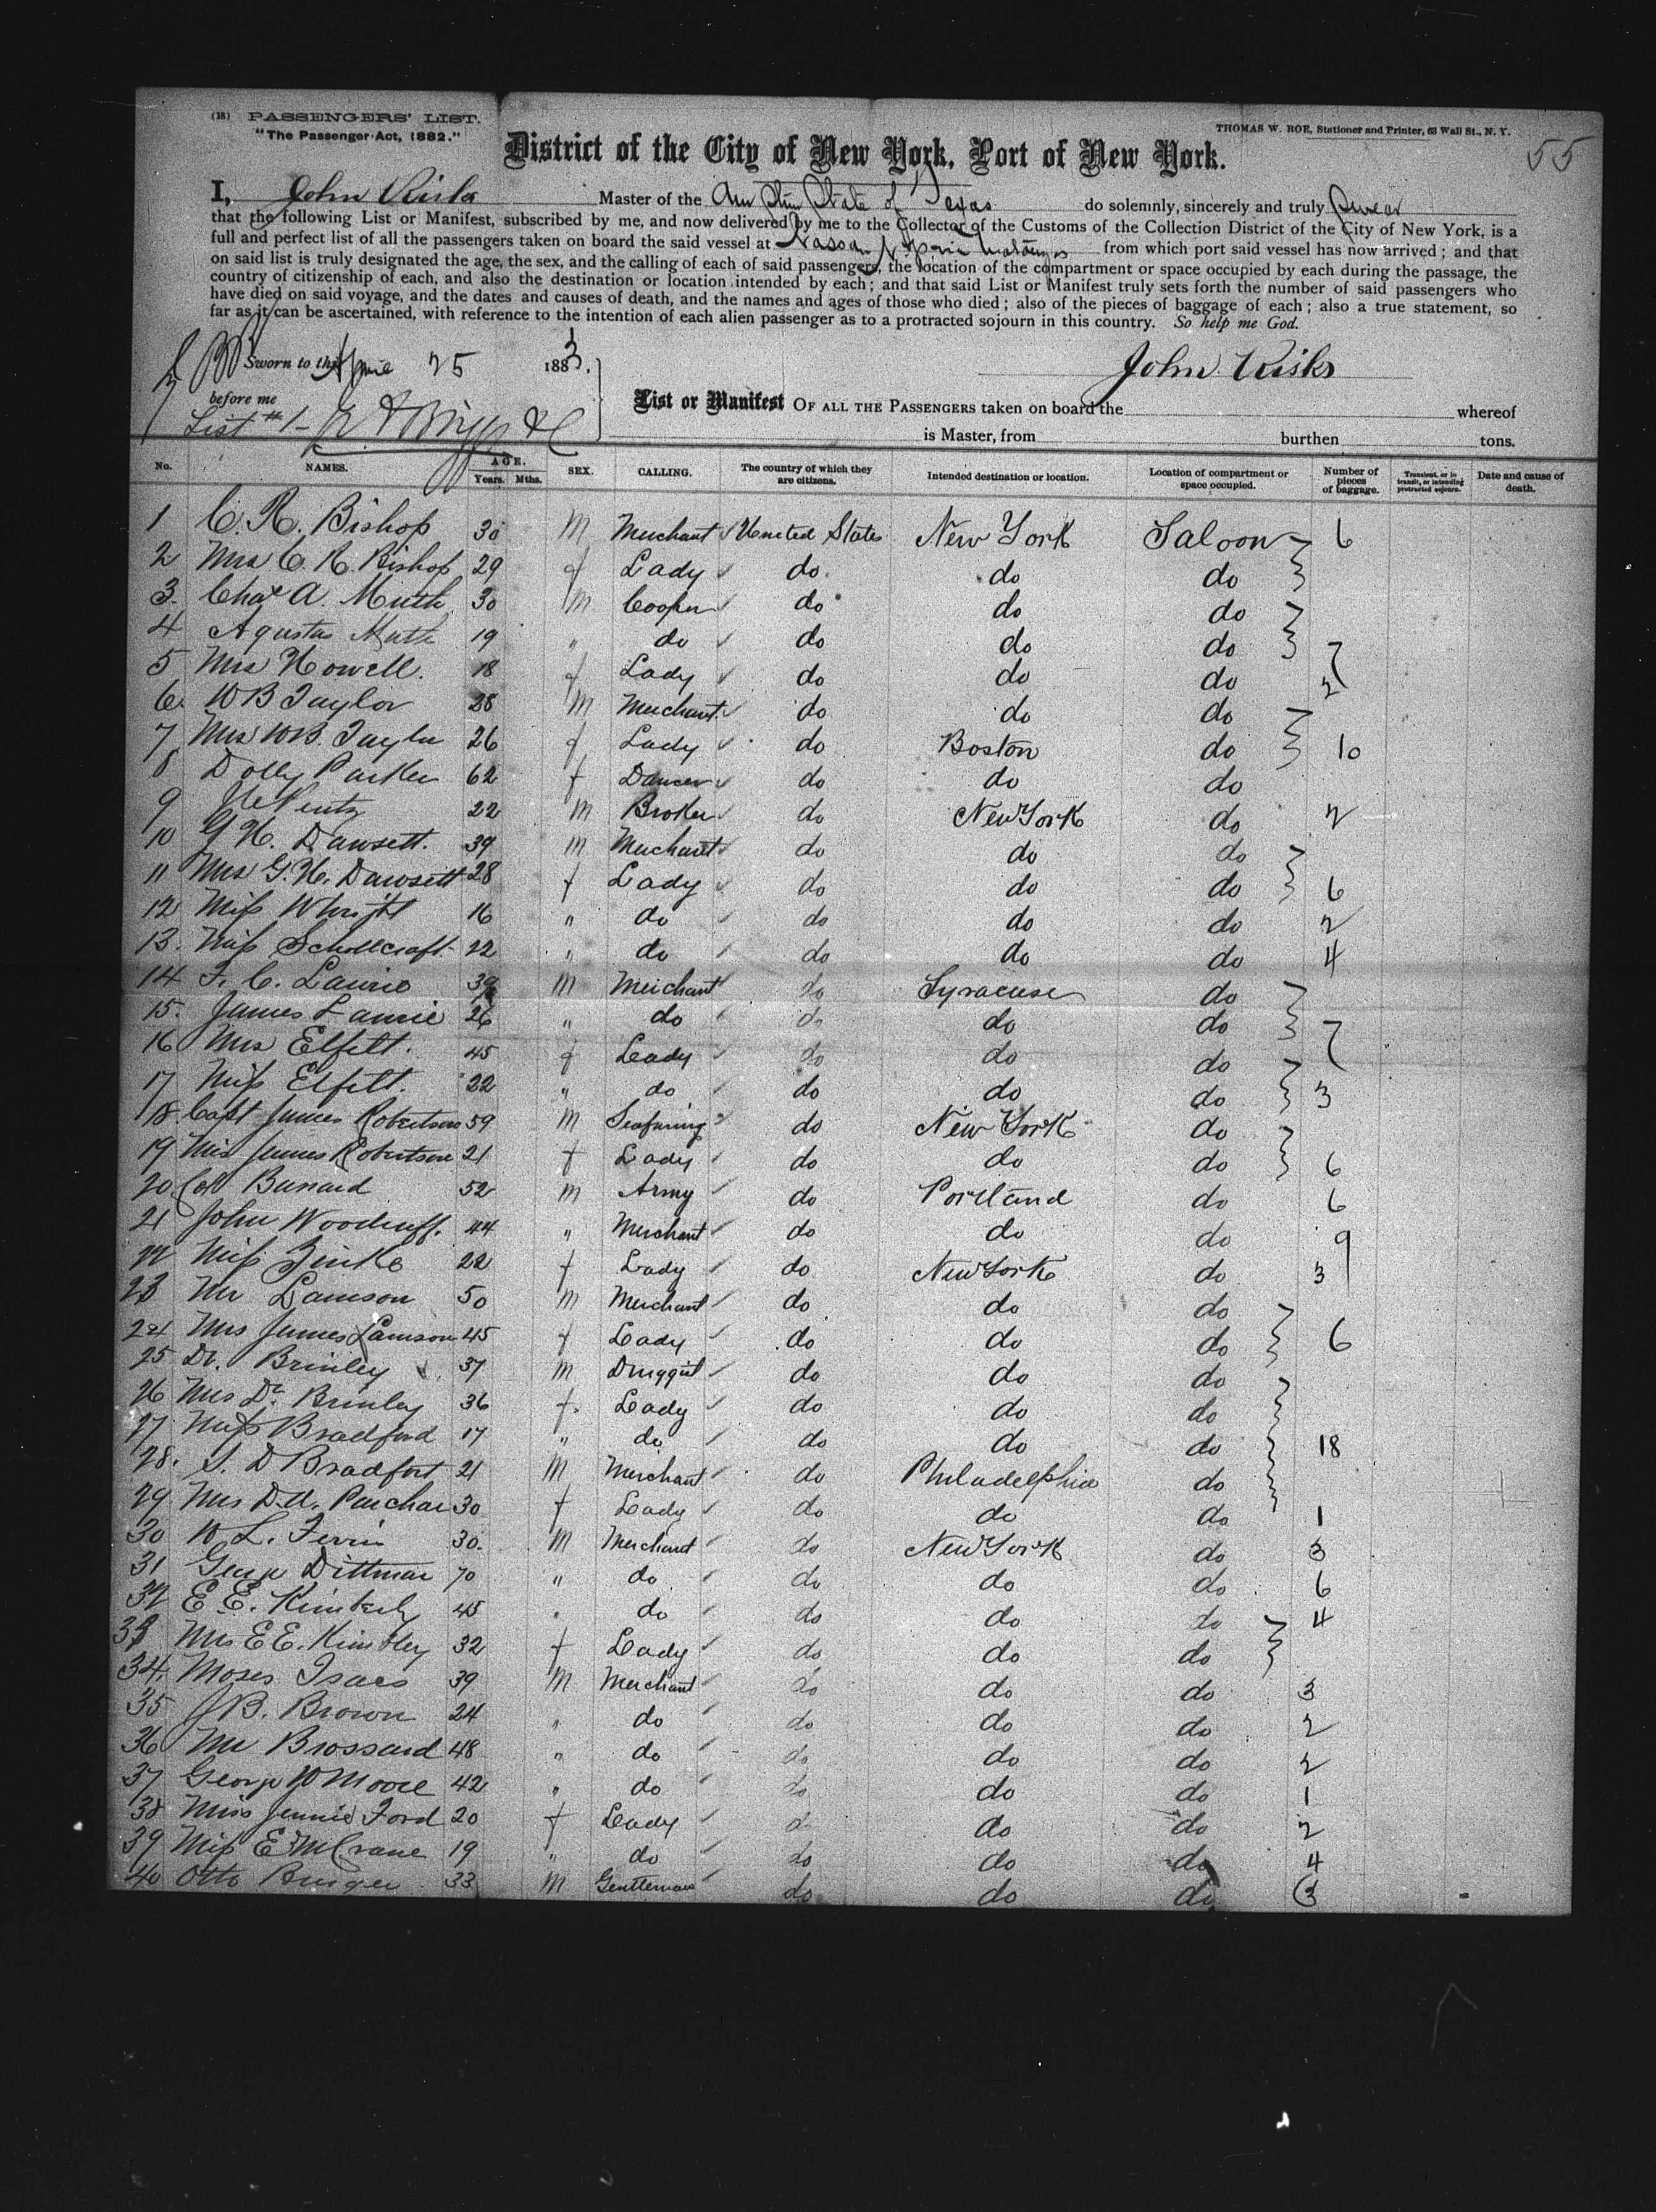 (18) PASSENGERS' LIST.
"The Passenger Act, 1882."
THOMAS W. ROE, Stationer and Printer, 63 Wall St., N. Y.
55
District of the City of New York, Port of New York.
I, John Risk Master of the Am Stm State of Texas do solemnly, sincerely and truly Swear
that the following List or Manifest, subscribed by me, and now delivered by me to the Collector of the Customs of the Collection District of the City of New York, is a
full and perfect list of all the passengers taken on board the said vessel at Nassau from which port said vessel has now arrived; and that
on said list is truly designated the age, the sex, and the calling of each of said passengers, the location of the compartment or space occupied by each during the passage, the
country of citizenship of each, and also the destination or location intended by each; and that said List or Manifest truly sets forth the number of said passengers who
have died on said voyage, and the dates and causes of death, and the names and ages of those who died; also of the pieces of baggage of each; also a true statement, so
far as it can be ascertained, with reference to the intention of each alien passenger as to a protracted sojourn in this country. So help me God.
Sworn to this 25 1883,
John Risk
before me
List #1-
List or Manifest OF ALL THE PASSENGERS taken on board the whereof
is Master, from burthen tons.
No. NAMES. AGE. Years. Mths. SEX. CALLING. The country of which they are citizens. Intended destination or location. Location of compartment or space occupied. Number of pieces of baggage. Transient, or in transit, or intending protracted sojourn. Date and cause of death.
1 C. R. Bishop 30 M Merchant United States New York Saloon 6
2 Mrs C. R. Bishop 29 f Lady do do do
3 Chas A. Muth 30 M Cooper do do do
4 Agustas Muth 19 " do do do do 7
5 Mrs Howell. 18 f Lady do do do 2
6 W B Taylor 28 M Merchant do do do
7 Mrs W.B. Taylor 26 f Lady do Boston do 10
8 Dolly Parker 62 f Dancer do do do
9 22 M Broker do New York do 2
10 G H. Dawsett. 39 M Merchant do do do
11 Mrs G. H. Dawsett 28 f Lady do do do 6
12 Miss Whright 16 " do do do do 2
13. Miss Schollcraft 22 " do do do do 4
14 F. C. Laurie 39 M Merchant do Syracuse do
15. James Laurie 26 " do do do do 7
16 Mrs Elfelt. 45 f Lady do do do
17 Miss Elfelt. 22 " do do do do 3
18 Capt James Robertson 59 M Seafaring do New York do
19 Mrs James Robertson 21 f Lady do do do 6
20 Col Barnard 52 M Army do Portland do 6
21 John Woodruff. 44 " Merchant do do do 9
22 Miss 22 f Lady do New York do 3
23 Mr Lamson 50 M Merchant do do do
24 Mrs James Lamson 45 f Lady do do do 6
25 Dr. Brinley 37 M Druggist do do do
26 Mrs Dr. Brinley 36 f Lady do do do
27 Miss Bradford 17 " do do do do 18
28. S. D Bradfort 21 M Merchant do Philadelphia do
29 Mrs D. A. 30 f Lady do do do 1
30 W L. 30. M Merchant do New York do 3
31 Dittmar 70 " do do do do 6
32 E E. Kimberly 45 " do do do do 4
33 Mrs E E. Kimberley 32 f Lady do do do
34. Moses Isacs 39 M Merchant do do do 3
35 J B. Brown 24 " do do do do 2
36 Mr Brossard 48 " do do do do 2
37 George W Moore 42 " do do do do 1
38 Miss Jennie Ford 20 f Lady do do do 2
39 Miss E McCrane 19 " do do do do 4
40 Otto Burger 33 M Gentleman do do do 3